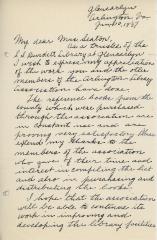 Glencarlyn
Arlington Va
June 10, 1937
My dear Mrs. Seaton,
As a Trustee of the
Burdett Library at Glencarlyn
I wish to express my appreciation
of the work you and the other
members of the Arlington Library
Association have done.
The reference books from the
county which were purchased
through the association are
in constant use and are
proving very satisfactory. Please
extend my thanks to the
members of the association
who give of their time and
interest in compiling the list
and also in purchasing and
distributing the books.
I hope that the association
will be able to continue its
work in improving and
developing the library facilities